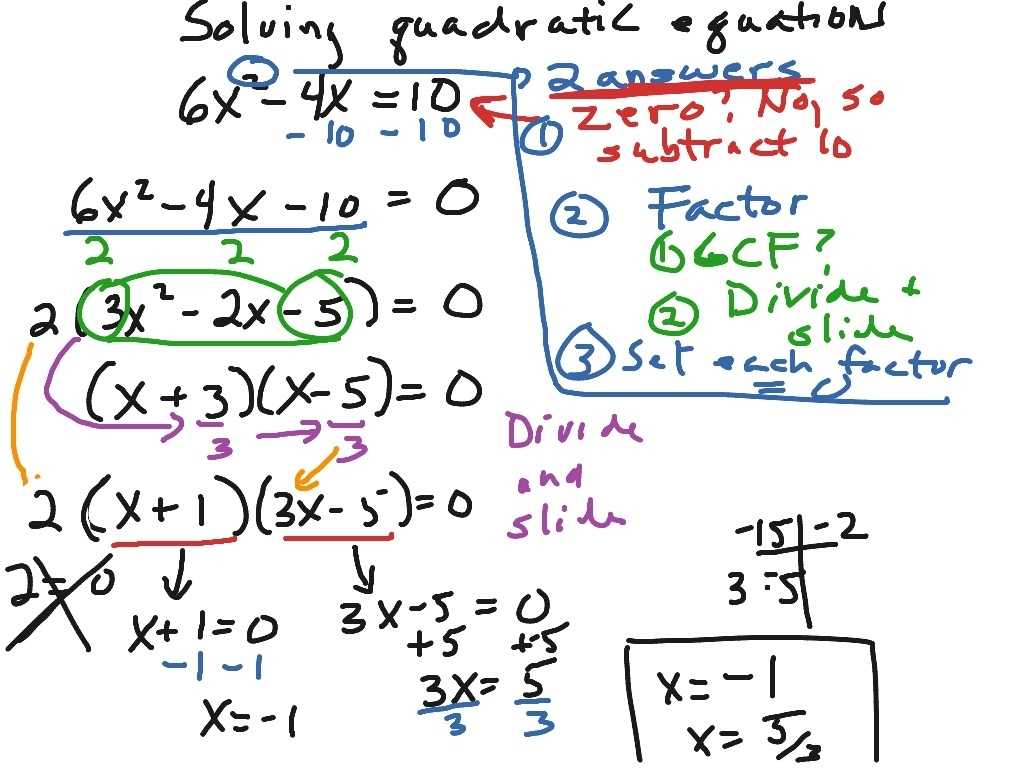 Solving quadratic equations
6x² - 4x = 10
- 10 - 10
2 answers
① zero? No, so
subtract 10
6x² - 4x - 10 = 0
2 2 2
② Factor
① GCF?
② Divide +
slide
2(3x² - 2x - 5) = 0
③ Set each factor
= 0
(x + 3)(x - 5) = 0
3 3
Divide
and
slide
2(x + 1)(3x - 5) = 0
2 = 0
x + 1 = 0
- 1 - 1
x = -1
3x - 5 = 0
+5 +5
3x = 5
3 3
-15 -2
3 -5
x = -1
x = 5/3